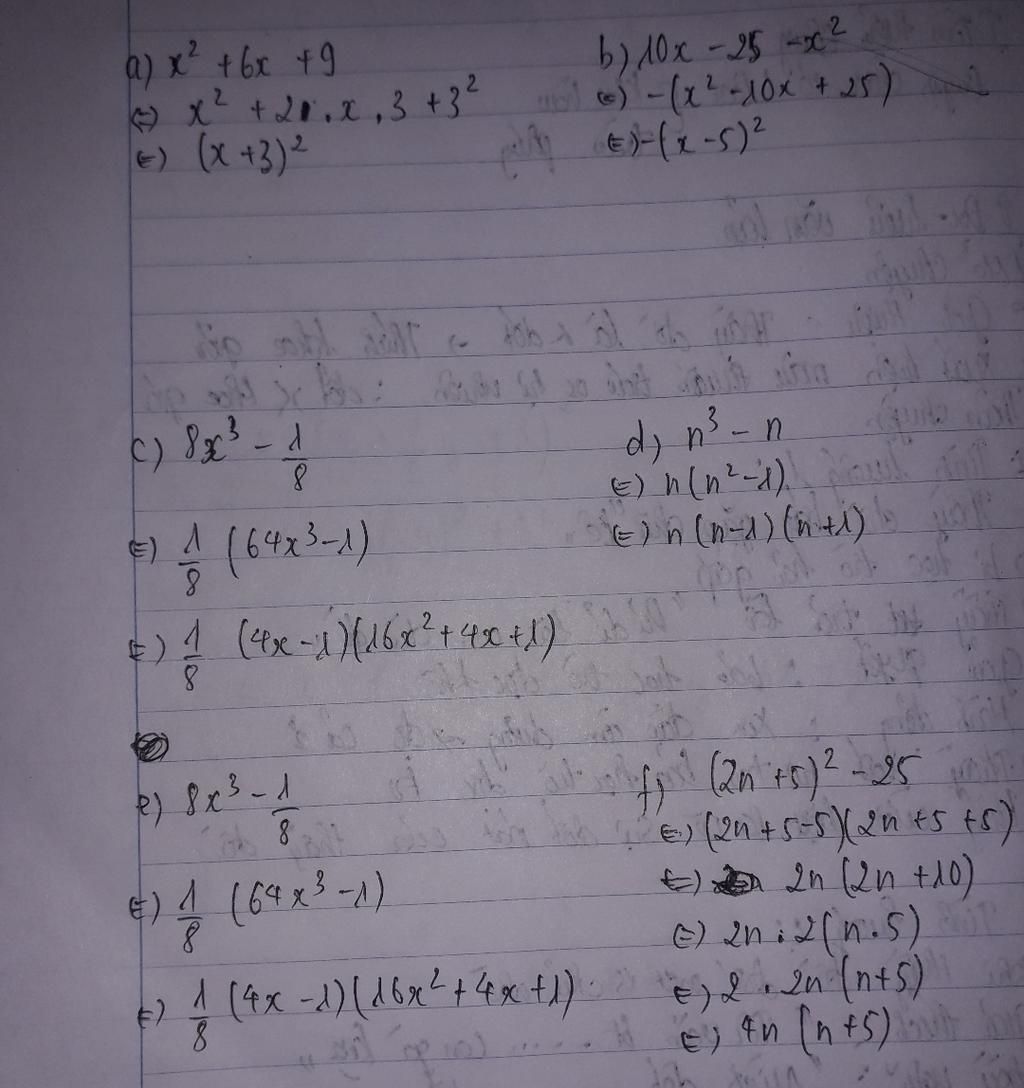 a) x² + 6x + 9
⇔ x² + 2.x.3 + 3²
⇔ (x + 3)²
b) 10x - 25 - x²
⇔ -(x² - 10x + 25)
⇔ -(x - 5)²
c) 8x³ - 1/8
⇔ 1/8 (64x³ - 1)
⇔ 1/8 (4x - 1)(16x² + 4x + 1)
d) n³ - n
⇔ n(n² - 1)
⇔ n(n - 1)(n + 1)
e) 8x³ - 1/8
⇔ 1/8 (64x³ - 1)
⇔ 1/8 (4x - 1)(16x² + 4x + 1)
f) (2n + 5)² - 25
⇔ (2n + 5 - 5)(2n + 5 + 5)
⇔ 2n (2n + 10)
⇔ 2n . 2(n . 5)
⇔ 2 . 2n (n + 5)
⇔ 4n (n + 5)